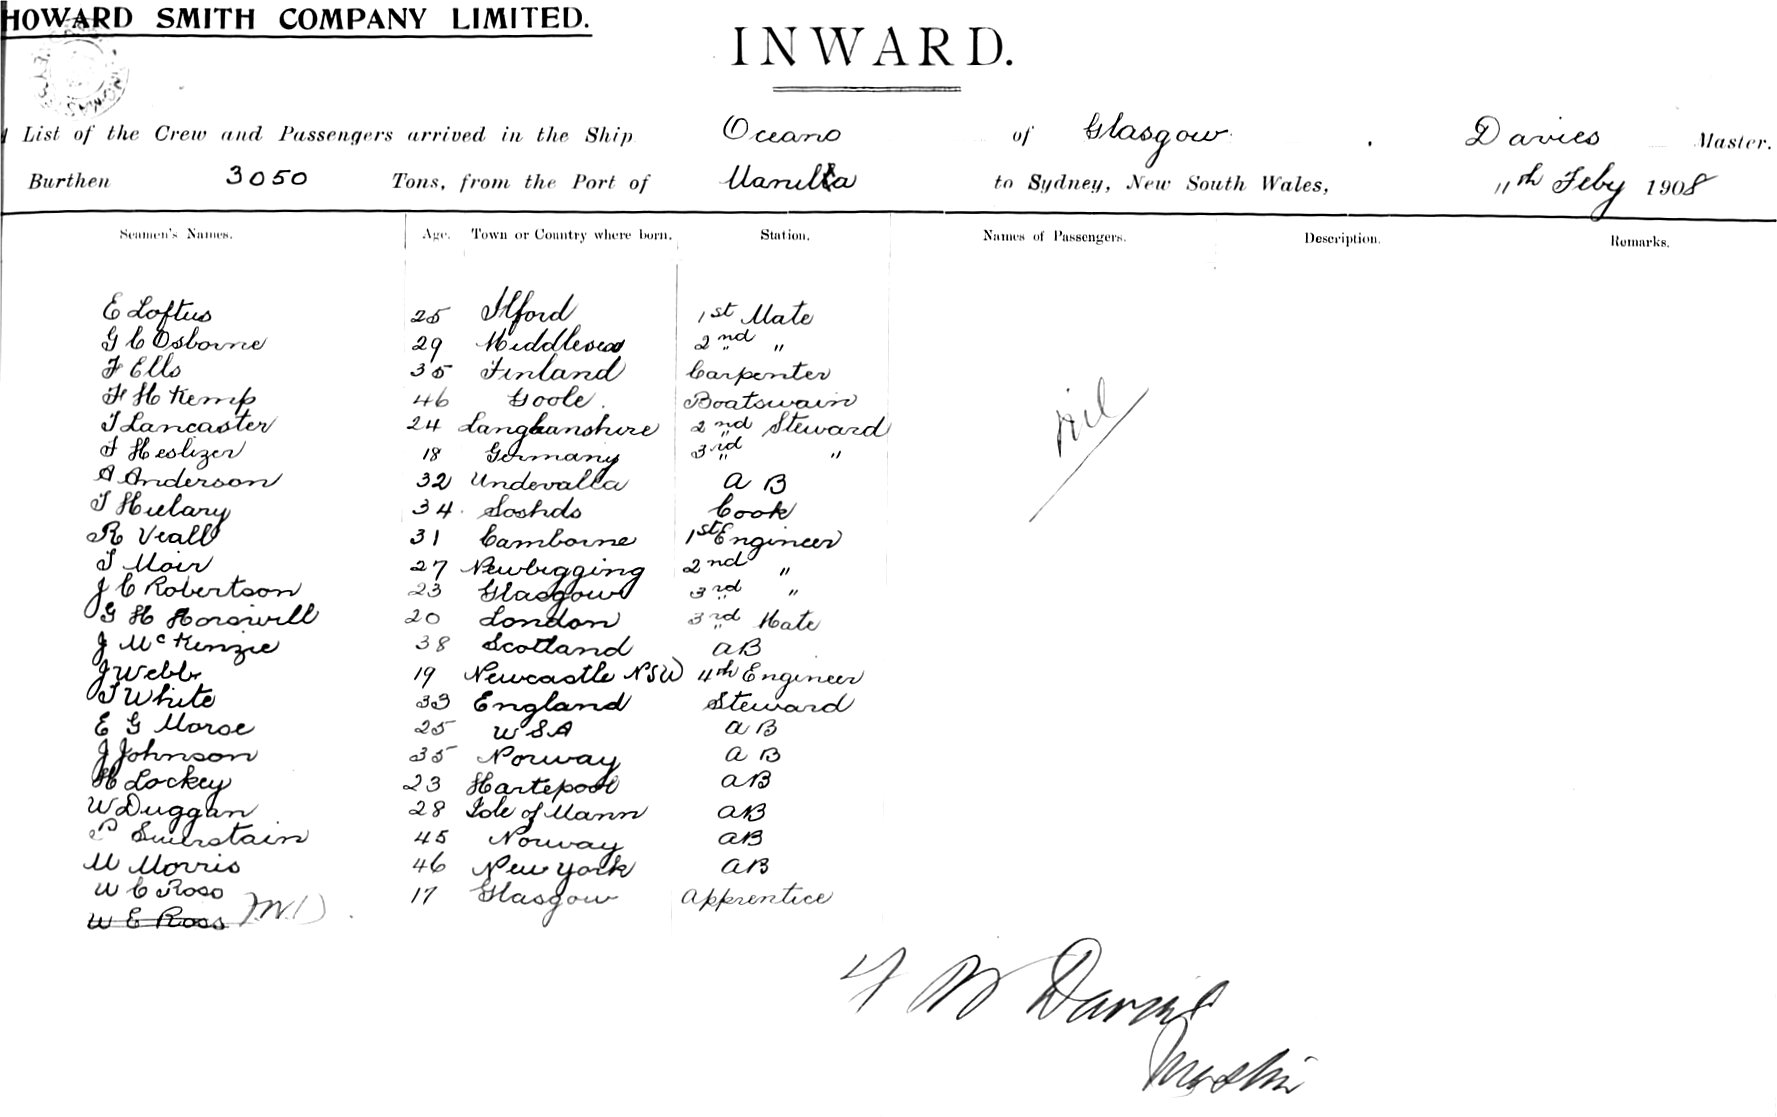 HOWARD SMITH COMPANY LIMITED.
INWARD.
List of the Crew and Passengers arrived in the Ship Oceano of Glasgow . Davies Master.
Burthen 3050 Tons, from the Port of Manilla to Sydney, New South Wales, 11th Feby 1908
Seamen's Names. Age. Town or Country where born. Station. Names of Passengers. Description. Remarks.
E Loftus 25 Ilford 1st Mate
G C Osborne 29 Middlesex 2nd "
F Ells 35 Finland Carpenter
F H Kemp 46 Goole. Boatswain
T Lancaster 24 2nd Steward
nil
F Heslizer 18 Germany 3rd "
A Anderson 32 Undevalla A B
T Hulary 34 Cook
R Veall 31 Camborne 1st Engineer
T Moir 27 Newbigging 2nd "
J C Robertson 23 Glasgow 3rd "
G H Horswill 20 London 3rd Mate
J McKenzie 38 Scotland AB
J Webb 19 Newcastle NSW 4th Engineer
T White 33 England Steward
E G Morse 25 USA A B
J Johnson 35 Norway A B
H Lockey 23 Hartepool AB
W Duggan 28 Isle of Mann AB
P 45 Norway AB
M Morris 46 New York AB
W C Ross 17 Glasgow Apprentice
W E Ross
F W Davies
Master